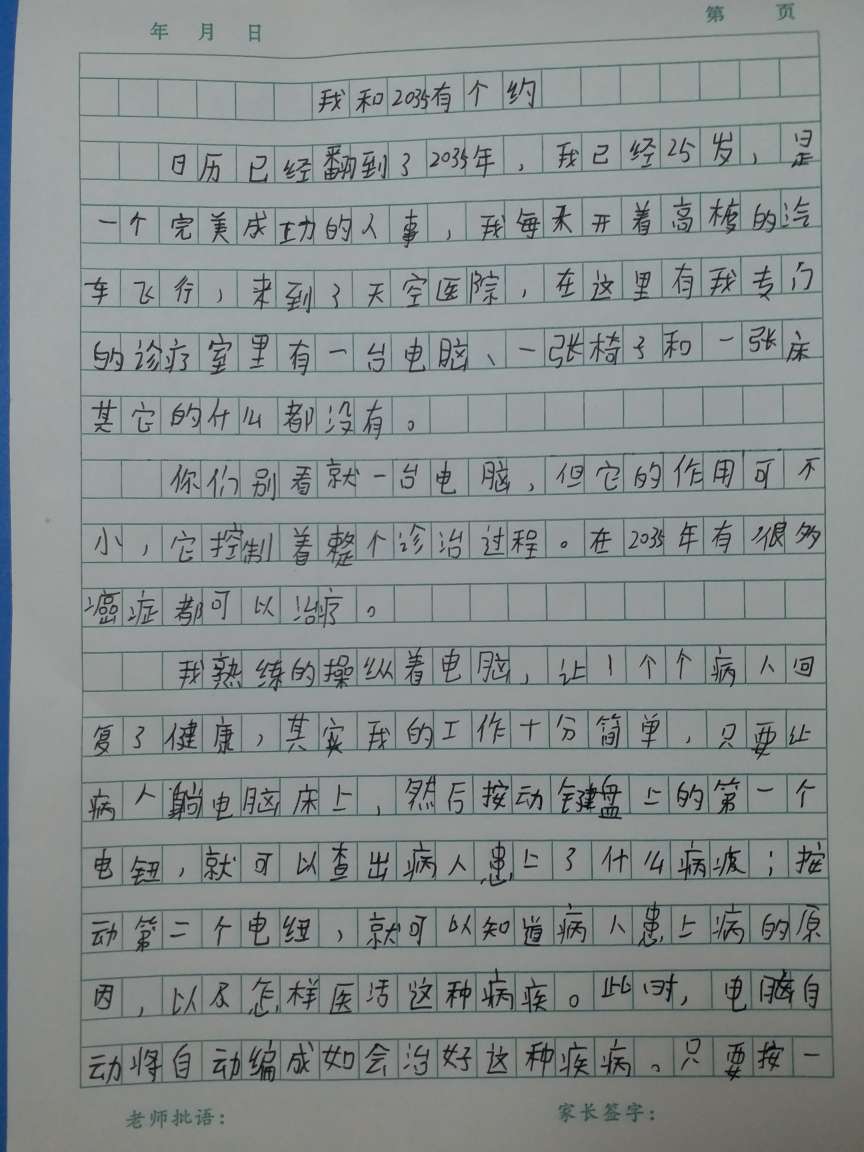 第 页
年 月 日
我和2035有个约
日历已经翻到了2035年，我已经25岁，是
一个完美成功的人事，我每天开着高楼的汽
车飞行，来到了天空医院，在这里有我专门
的诊疗室里有一台电脑、一张椅子和一张床
其它的什么都没有。
你们别看就一台电脑，但它的作用可不
小，它控制着整个诊治过程。在2035年有很多
癌症都可以治疗。
我熟练的操纵着电脑，让1个个病人回
复了健康，其实我的工作十分简单，只要让
病人躺电脑床上，然后按动键盘上的第一个
电钮，就可以查出病人患上了什么病；按
动第二个电纽，就可以知道病人患上病的原
因，以及怎样医活这种病疾。此时，电脑自
动将自动编成如会治好这种疾病。只要按一
老师批语： 家长签字：